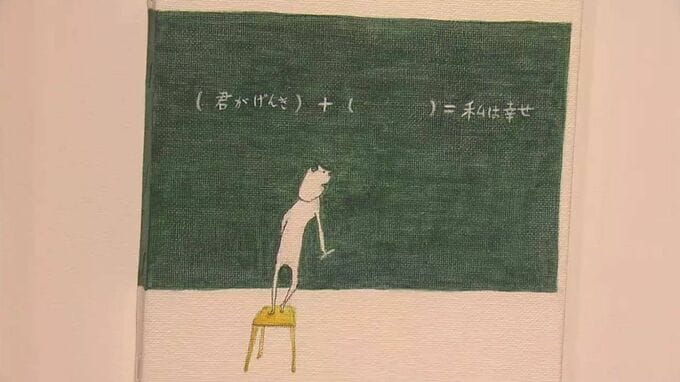 (君がげんき)+(　　　)=私は幸せ